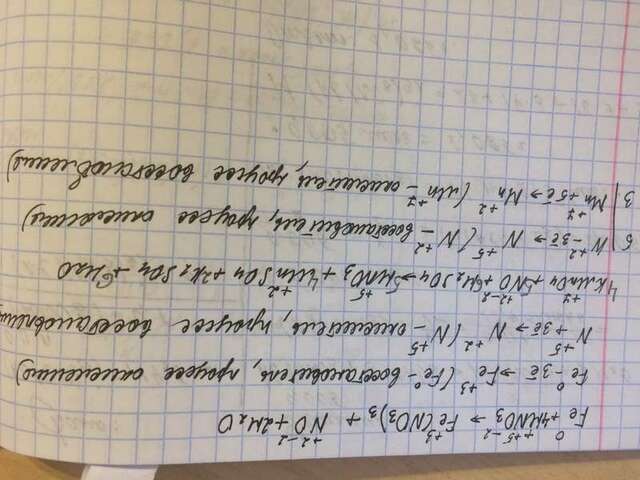 0 +5 -2 +3 +2 -2
Fe+4HNO3 → Fe(NO3)3 + NO+2H2O
0 +3 0
Fe -3e̅ → Fe (Fe - восстановитель, процесс окисления)
+5 +2 +5
N +3e̅ → N (N - окислитель, процесс восстановления)
+7 +2-2 +5 +2
4KMnO4+5NO+6H2SO4→5HNO3+4MnSO4+2K2SO4+6H2O
+2 +5 +2
5| N -3e̅ → N (N - восстановитель, процесс окисления)
+7 +2 +7
3| Mn+5e̅ → Mn (Mn - окислитель, процесс восстановления)